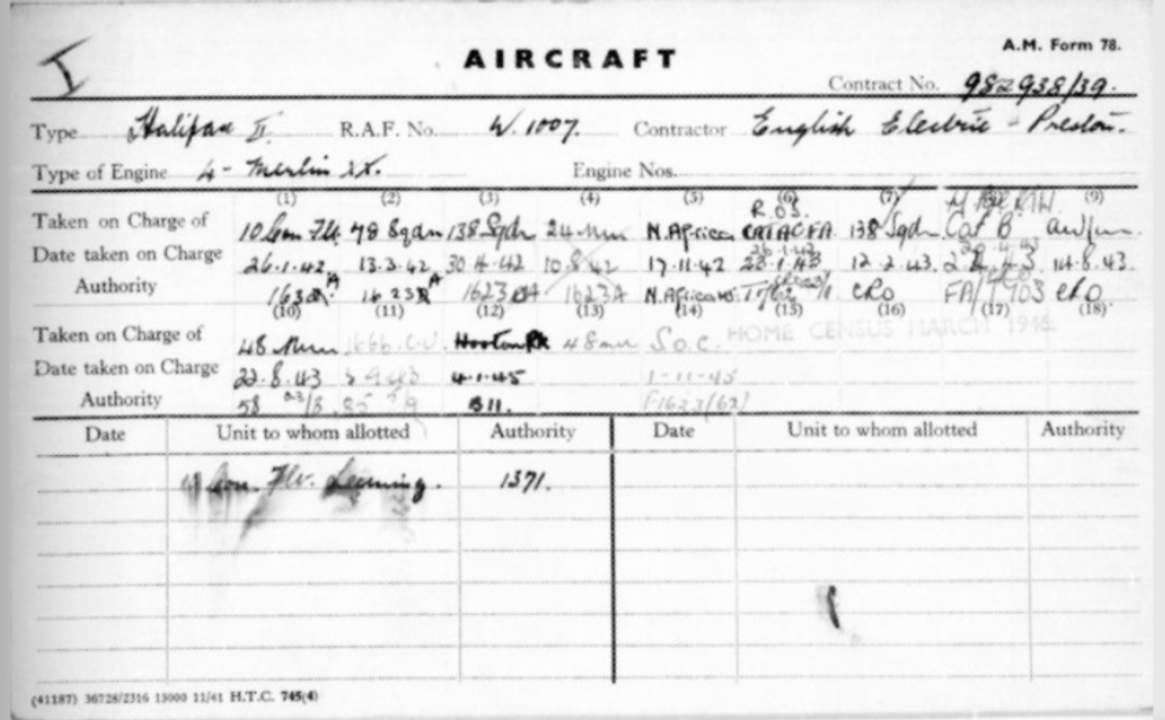 I
A.M. Form 78.
AIRCRAFT
Contract No. 982938/39.
Type Halifax II. R.A.F. No. W. 1007. Contractor English Electric - Preston.
Type of Engine 4 - Merlin XX. Engine Nos.
(1) (2) (3) (4) (5) (6) (7) (9)
R.O.S.
Taken on Charge of 10 Con. Flt. 78 Sqdn 138 Sqdn 24 MU N. Africa CAT AC FA 138 Sqdn Cat B
Date taken on Charge 26.1.42 13.3.42 30.4.42 10.8.42 17.11.42 23.1.43 12.2.43. 14.8.43.
Authority 1623A 1623A N. Africa CRO CRO
(10) (11) (12) (13) (14) (15) (16) (17) (18)
HOME CENSUS MARCH 1946
Taken on Charge of 48 Mu 1666.C.U. Hooton Pk 48 mu S.o.C.
Date taken on Charge 22.8.43 4.1.45 1-11-45
Authority 58 B11. F1623/62
Date Unit to whom allotted Authority Date Unit to whom allotted Authority
Con. Flt. Leeming. 1371.
(41187) 36728/2316 13000 11/41 H.T.C. 745(4)